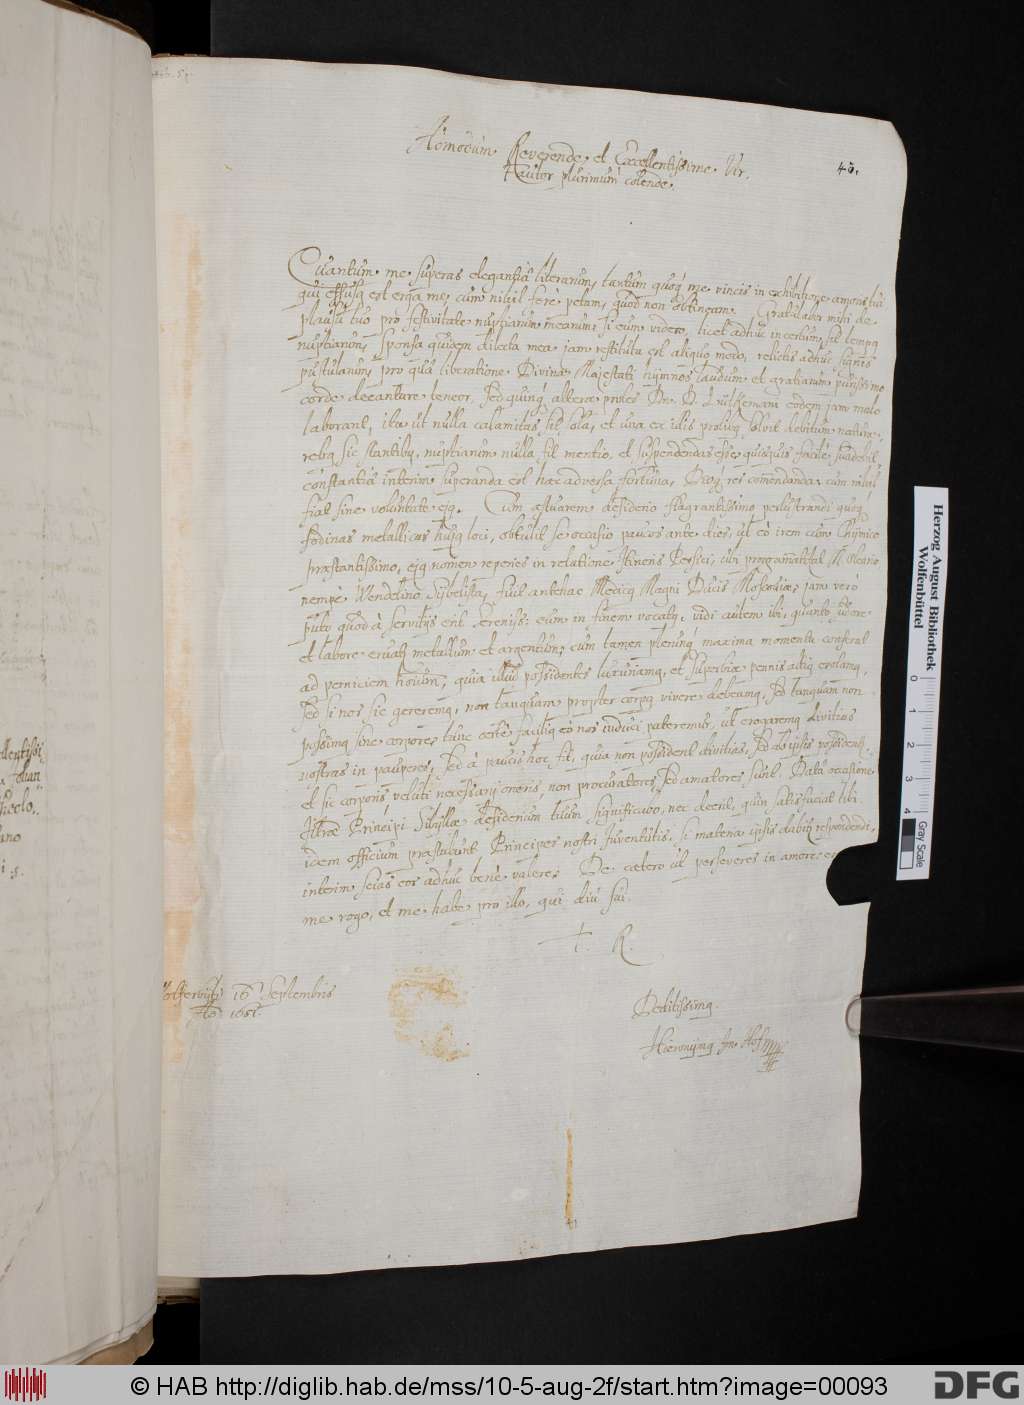 Admodum Reverende et Excellentissime Vir.
Fautor plurimum colende.
45.
Quantum me superas elegantiâ literarum, tantum quoq me vincis in exhibitione amoris tui
qui effusq est erga me, cum nihil ferè petam, quod non obtineam. Gratulabor mihi de
plausu tuo pro festivitate nuptiarum mearum, si eum videro, licet adhuc incertum sit tempq
nuptiarum, Sponsa quidem dilecta mea jam restituta est aliquo modo, relictis adhuc signis
pustularum, pro quâ liberatione Divinæ Majestati hymnos laudum et gratiarum purissimo
corde decantare teneor, sed quinq alteræ proles Dn. D. Lutkemani eodem jam malo
laborant, ita ut nulla calamitas sit sola, et una ex illis proliq solvit debitum naturæ,
rebq sic stantibq, nuptiarum nulla fit mentio, et suspendendas esse quisquis facilè suadebit
constantiâ interim superanda est hæc adversa fortuna, Deoq res comendanda, cum nihil
fiat sine voluntate ejq. Cum æstuarem desiderio flagrantissimo perlustrandi quoq
fodinas metallicas hujq loci, obtulit se occasio paucos ante dies, ut eò irem cum Chymico
præstantissimo, ejq nomen reperies in relatione Itineris Persici, ubi programatital M. Oleario
nempè Wendelino Sybelista, fuit antehac Medicq Magni Ducis Moscoviæ, jam verò
puto quod à servitijs erit Sereniss: eum in finem vocatq, vidi autem ibi, quanto sudore
et labore eruatq metallum et argentum, cum tamen plerunq maxima momenta conferat
ad perniciem hominum, quia illud possidentes luxuriamq, et superbiæ pennis altiq evolamq,
sed si nos sic gereremq, non tanquam propter corpq vivere debeamq, sed tanquam non
possimq sine corpore, tunc certè faciliq eò nos induci pateremur, ut erogaremq divitias
nostras in pauperes, sed à paucis hoc fit, quia non possident divitias, sed ab ipsis possident,
et sic corporis veluti necessarij oneris, non procuratores, sed amatores sunt. Datâ occasione
Illræ Principi Sibyllæ desiderium tuum significavo, nec deerit, quin satisfaciat tibi
idem officium præstabunt Principes nostri Juventutis, si materia ipsis dabitq respondendi,
interim scias eos adhuc benè valere. De cætero ut perseveres in amore erga
me rogo, et me habe pro illo, qui diu fui.
T. R.
16 Septembris
Ao 1651.
Deditissimq
Hieronymq Im Hof
Herzog August Bibliothek
Wolfenbüttel
0 1 2 3 4
Gray Scale
© HAB http://diglib.hab.de/mss/10-5-aug-2f/start.htm?image=00093
DFG